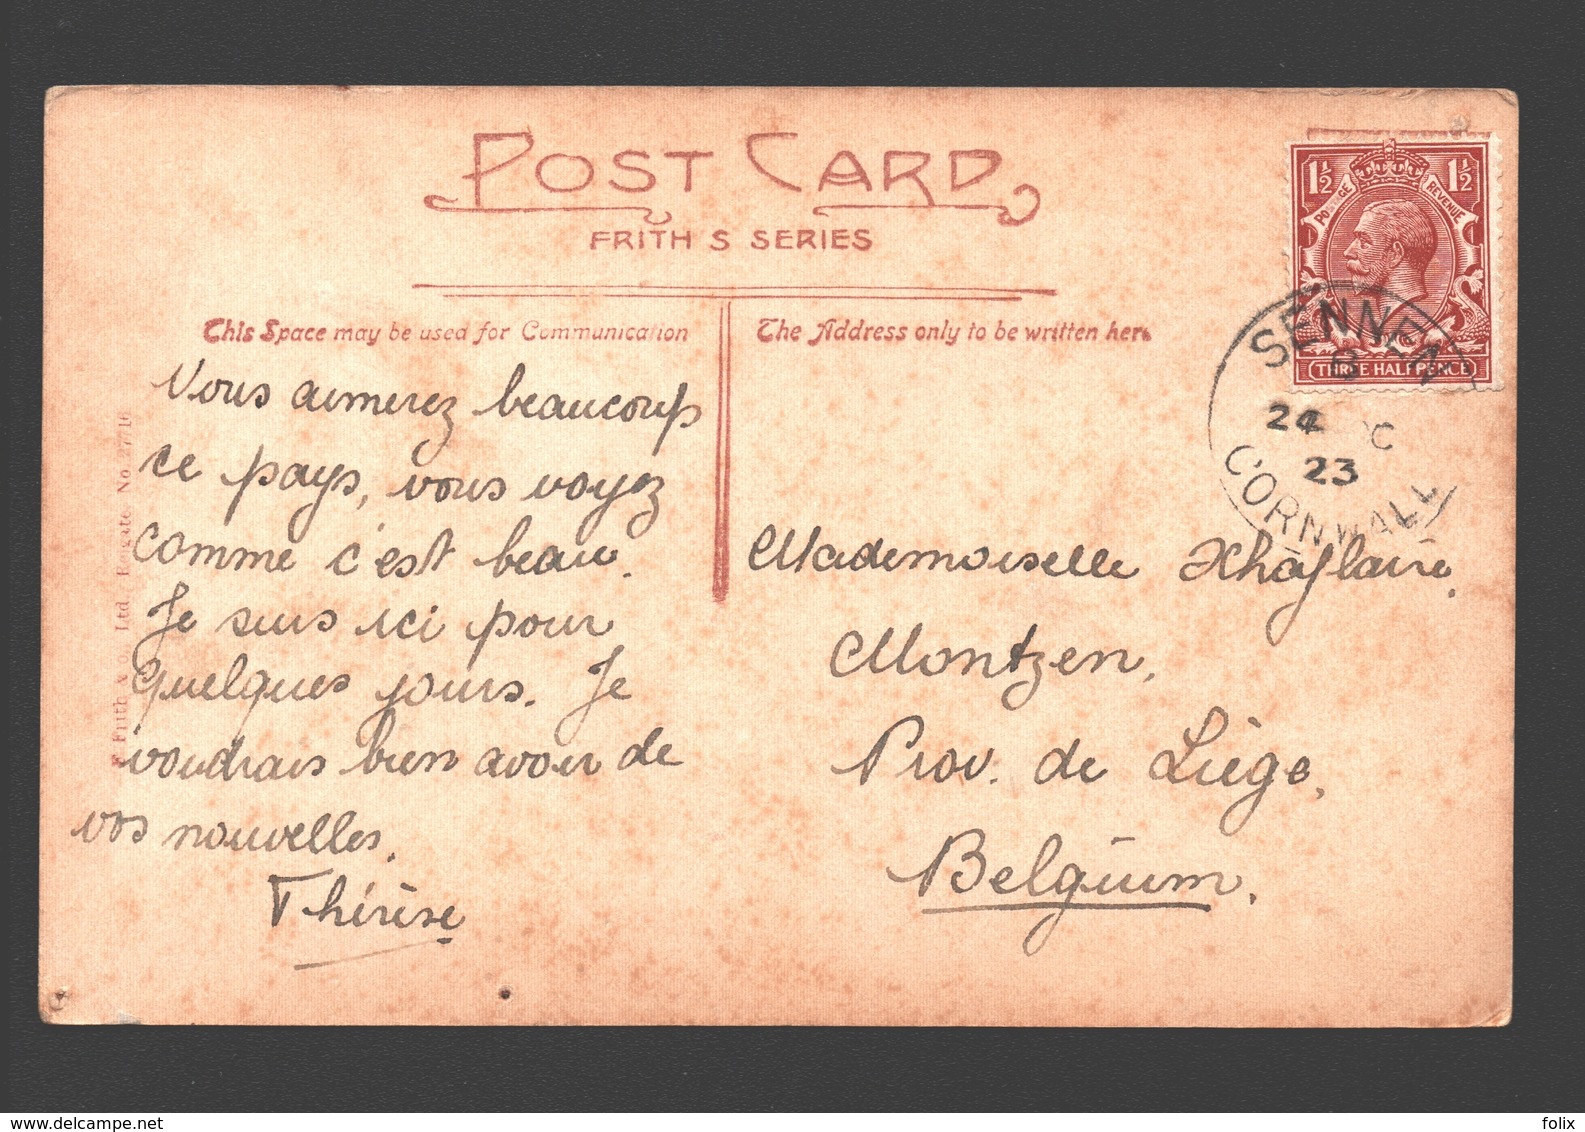 POST CARD
FRITH S SERIES
This Space may be used for Communication
The Address only to be written here
Vous aimerez beaucoup
ce pays, vous voyez
comme c'est beau.
Je suis ici pour
quelques jours. Je
voudrais bien avoir de
vos nouvelles.
Thérèse
Mademoiselle
Montzen,
Prov. de Liège,
Belgium.
1½ 1½
POSTAGE REVENUE
THREE HALFPENCE
SENNEN
24
23
CORNWALL
Frith & Co. Ltd. Reigate No
www.delcampe.net
folix